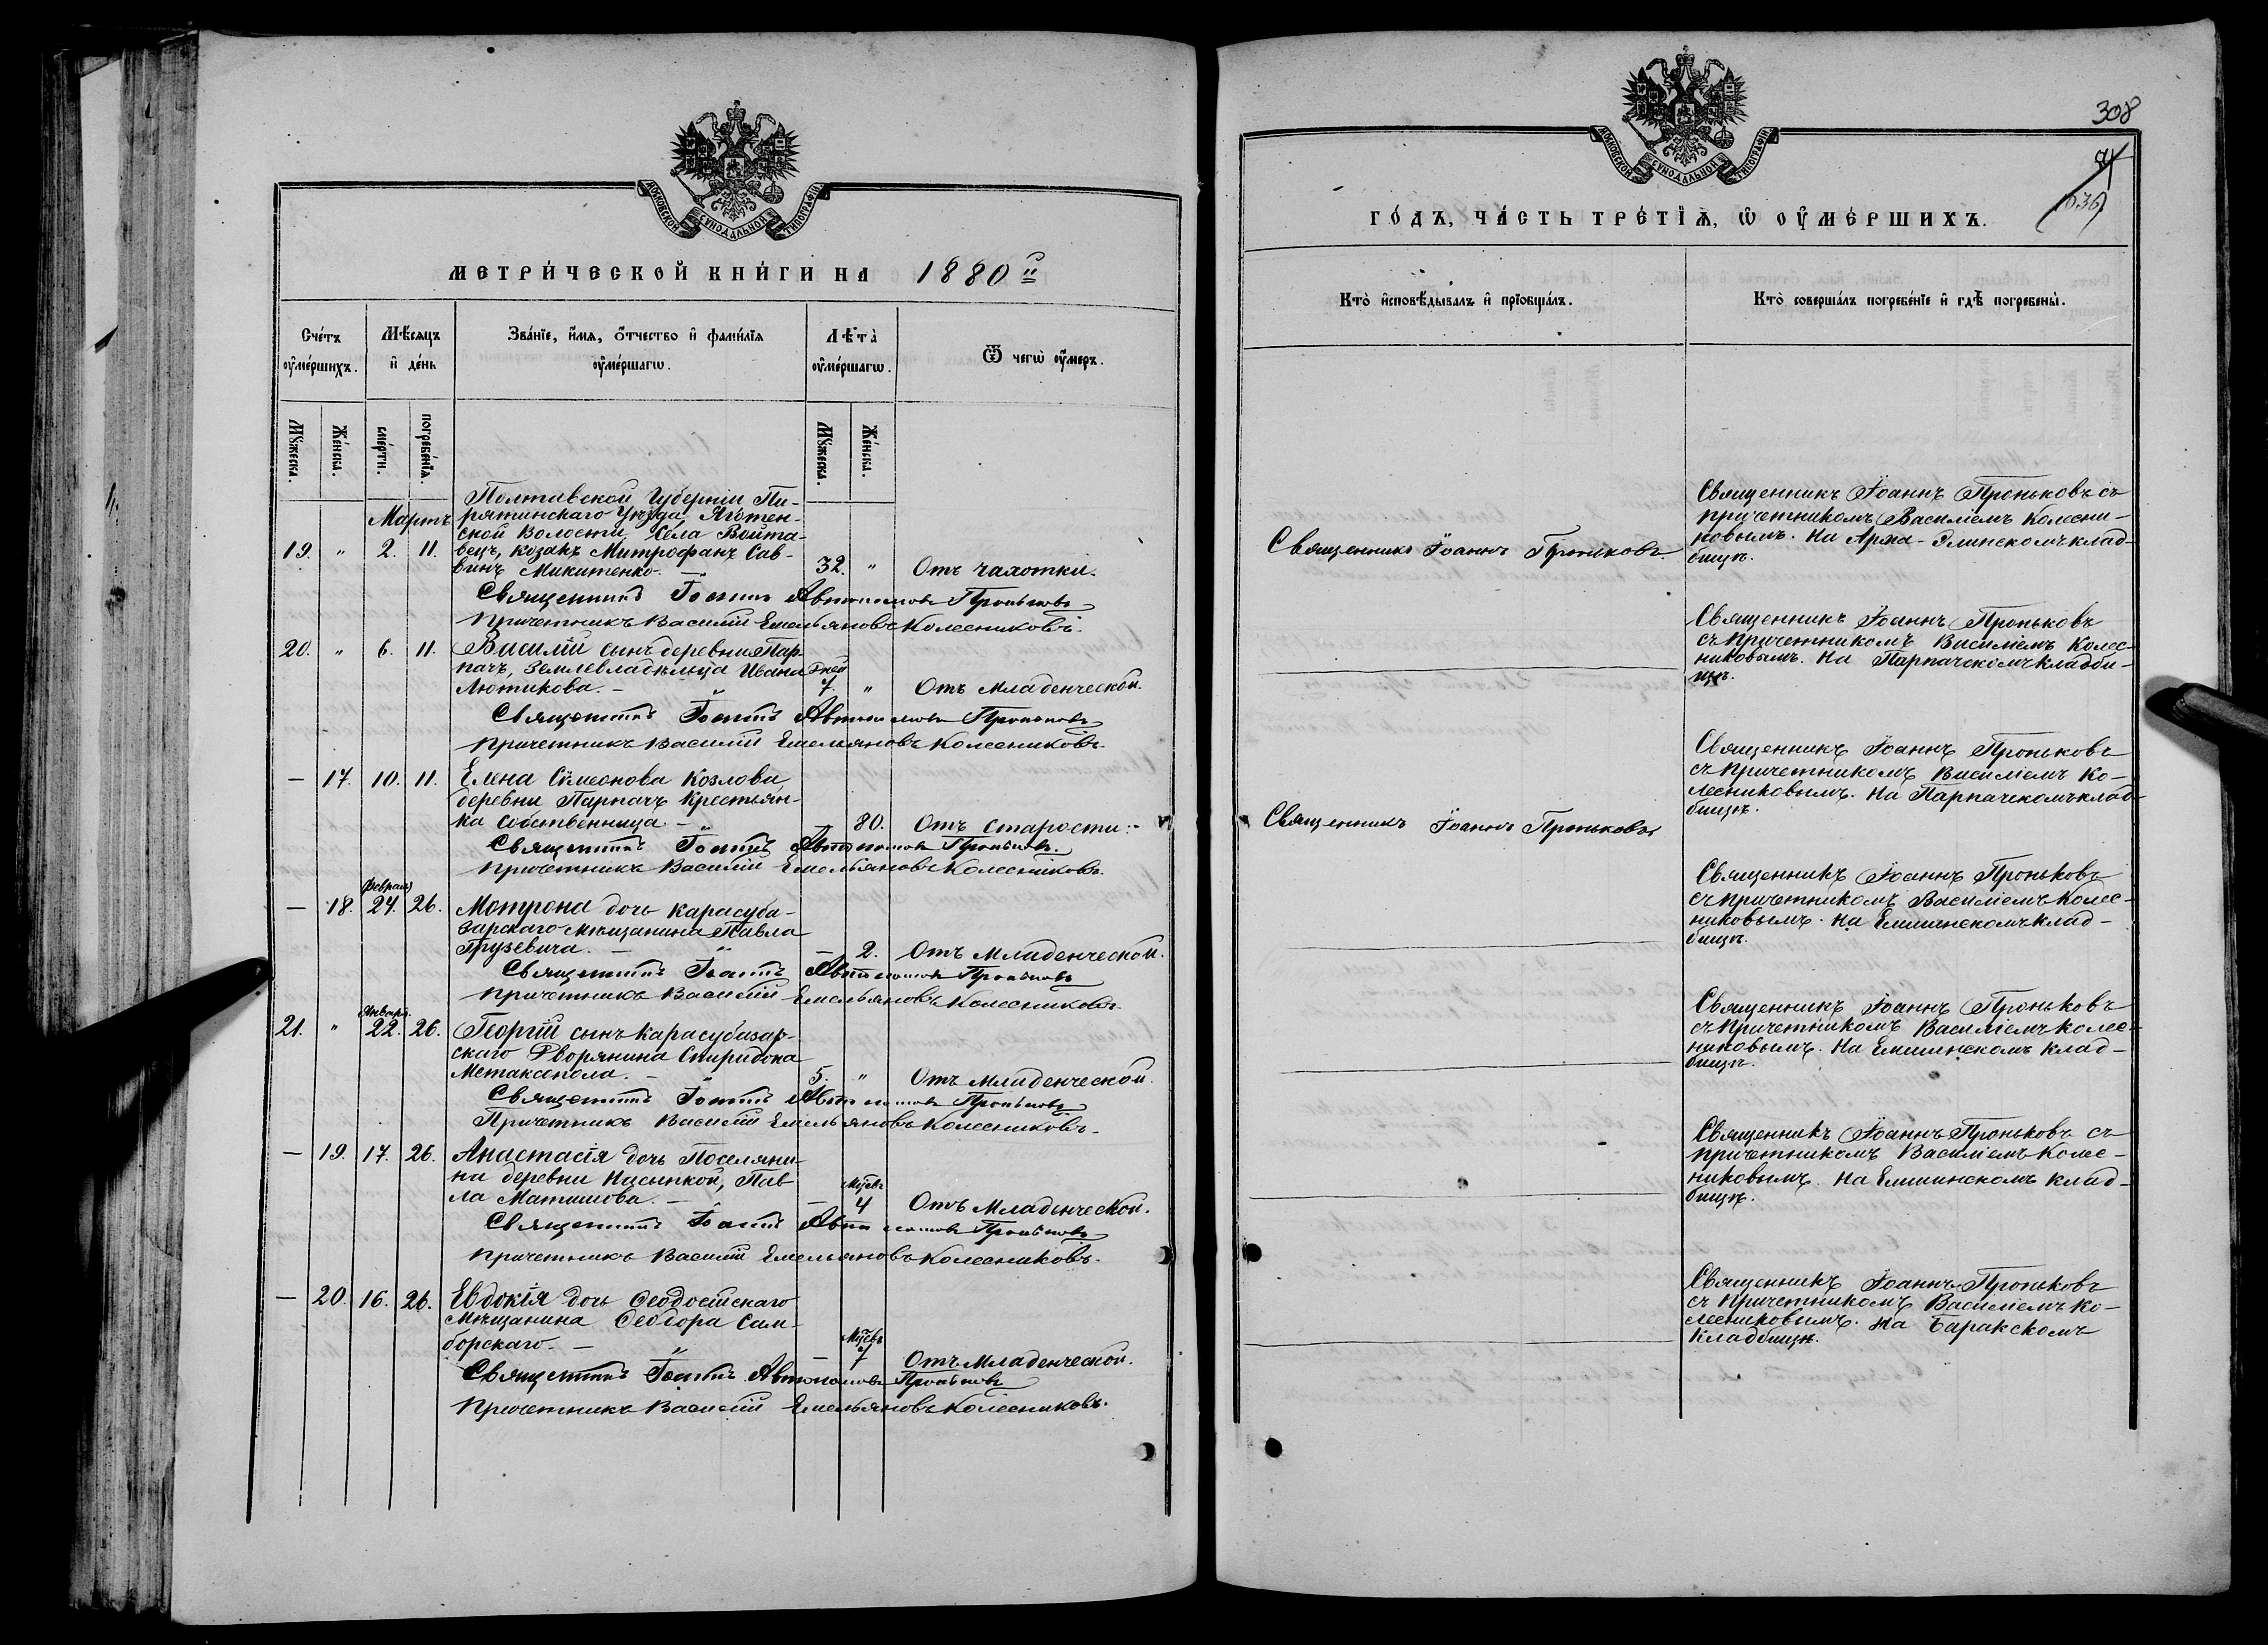 МОСКОВСКОЙ СѴНОДАЛЬНОЙ ТИПОГРАФІИ
МЕТРИ́ЧЕСКОЙ КНИ́ГИ НА 1880 й
Сче́тъ оу҆ме́ршихъ.
Мѣ́сяцъ и҆ де́нь
Зва́нїе, и҆́мѧ, ѻ҆́тчество и҆ фами́лїѧ оу҆ме́ршагѡ.
Лѣ̀та̀ оу҆ме́ршагѡ.
Ѿ чегѡ̀ оу҆́меръ.
Мꙋ́жеска. Же́нска. сме́рти. погребе́нїѧ. Мꙋ́жеска. Же́нска.
Полтавской Губерніи Пи-
Мартъ рятинскаго Уѣзда Яготен-
ской Волости, Села Войта-
19. " 2. 11. вецъ, козакъ Митрофанъ Сав-
винъ Микитенко. — 32. " Отъ чахотки.
Священникъ Іоаннъ Автономовъ Проньковъ
Причетникъ Василій Емельяновъ Колесниковъ.
20. " 6. 11. Василій сынъ деревни Пар-
пачъ, Землевладѣльца Ивана Дней
Лютикова. — 7. " Отъ Младенческой.
Священникъ Іоаннъ Автономовъ Проньковъ
Причетникъ Василій Емельяновъ Колесниковъ.
— 17. 10. 11. Елена Сѵмеонова Козлова
деревни Парпачъ Крестьян-
ка собственница. — — 80. Отъ Старости.
Священникъ Іоаннъ Автономовъ Проньковъ.
Причетникъ Василій Емельяновъ Колесниковъ.
Февраля
— 18. 24. 26. Мотрона дочь Карасуба-
зарскаго Мѣщанина Павла
Грузевича. — — 2. Отъ Младенческой.
Священникъ Іоаннъ Автономовъ Проньковъ
Причетникъ Василій Емельяновъ Колесниковъ.
Января.
21. " 22. 26. Георгій сынъ Карасубазар-
скаго Дворянина Спиридона
Метаксопола. — 5. " Отъ Младенческой.
Священникъ Іоаннъ Автономовъ Проньковъ
Причетникъ Василій Емельяновъ Колесниковъ.
— 19. 17. 26. Анастасія дочь Поселяни-
на деревни Насыпкой, Пав-
ла Матишова. — — Мѣсѧцъ 4 Отъ Младенческой.
Священникъ Іоаннъ Автономовъ Проньковъ
Причетникъ Василій Емельяновъ Колесниковъ.
— 20. 16. 26. Евдокія дочь Ѳеодосійскаго
Мѣщанина Ѳеодора Сам-
борскаго. — — 7 Отъ Младенческой.
Священникъ Іоаннъ Автономовъ Проньковъ
Причетникъ Василій Емельяновъ Колесниковъ.
308
МОСКОВСКОЙ СѴНОДАЛЬНОЙ ТИПОГРАФІИ
ГО́ДЪ, ЧА́СТЬ ТРЕ́ТЇѦ, Ѡ҆ ОУ҆МЕ́РШИХЪ.
Кто̀ и҆сповѣ́дывалъ и҆ прїобща́лъ.
Кто̀ соверша́лъ погребе́нїе и҆ гдѣ̀ погребены̀.
Священникъ Іоаннъ Проньковъ
Священникъ Іоаннъ Проньковъ съ
причетникомъ Василіемъ Колесни-
ковымъ. На Арма-Элинскомъ клад-
бищѣ.
Священникъ Іоаннъ Проньковъ
съ причетникомъ Василіемъ Колес-
никовымъ. На Парпачскомъ кладби-
щѣ.
Священникъ Іоаннъ Проньковъ
Священникъ Іоаннъ Проньковъ
съ причетникомъ Василіемъ Ко-
лесниковымъ. На Парпачскомъ клад-
бищѣ.
Священникъ Іоаннъ Проньковъ
съ причетникомъ Василіемъ Колес-
никовымъ. На Ешкинскомъ клад-
бищѣ.
Священникъ Іоаннъ Проньковъ
съ причетникомъ Василіемъ Колес-
никовымъ. На Ешкинскомъ клад-
бищѣ.
Священникъ Іоаннъ Проньковъ съ
причетникомъ Василіемъ Колес-
никовымъ. На Ешкинскомъ клад-
бищѣ.
Священникъ Іоаннъ Проньковъ
съ причетникомъ Василіемъ Ко-
лесниковымъ. На Баракскомъ
кладбищѣ.